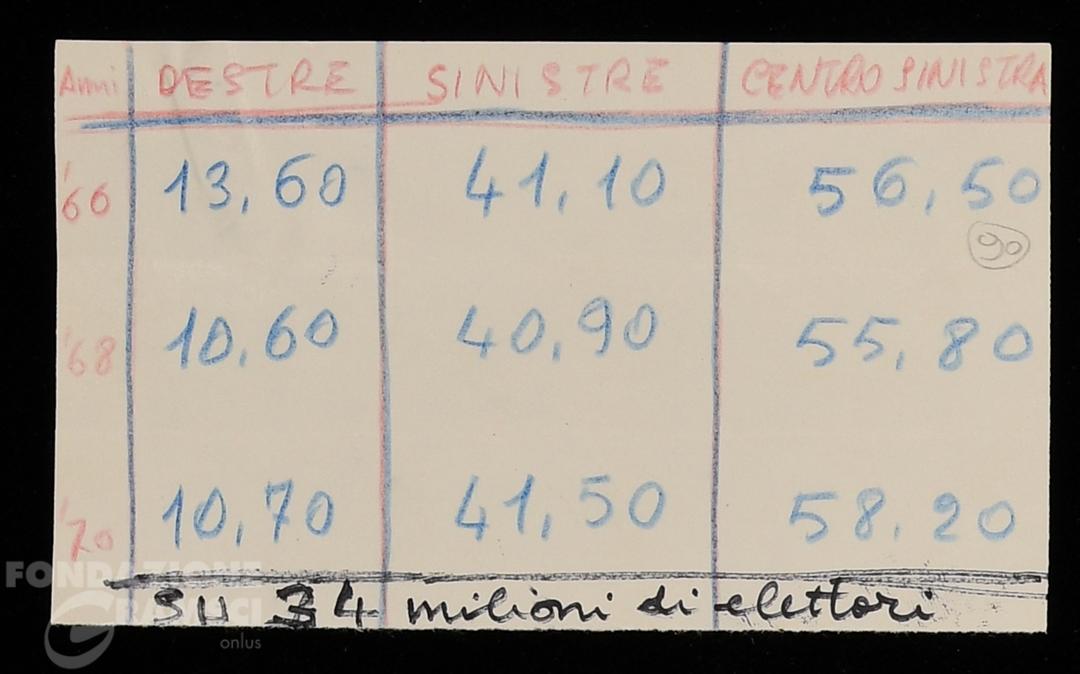 Anni DESTRE SINISTRE CENTRO SINISTRA
'66 13,60 41,10 56,50
90
'68 10,60 40,90 55,80
'70 10,70 41,50 58,20
SU 34 milioni di elettori
FONDAZIONE
GRAMSCI
onlus